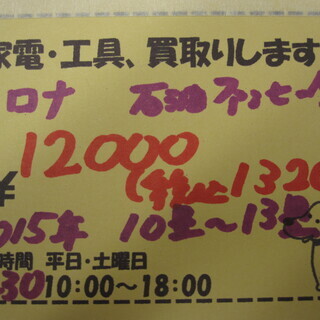 家電・工具、買取りします
ロナ 石油ファンヒー
¥12000
(税込1320
015年 10畳～13畳
時間 平日・土曜日
30 10:00～18:00